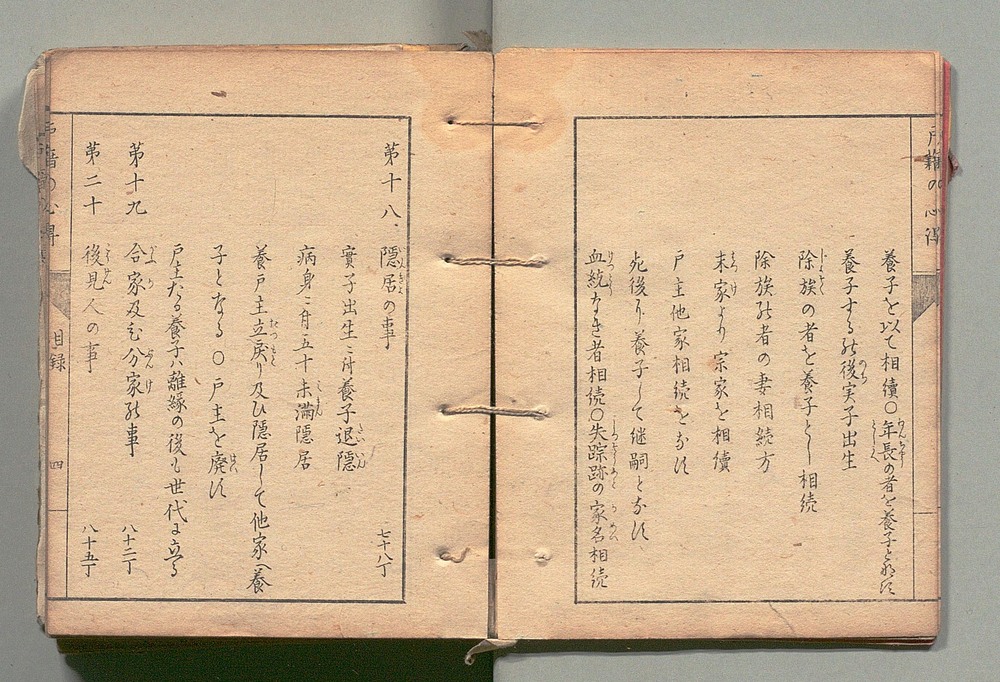 戸籍の心得
養子を以て相續〇年長の者を養子と為す
養子する能後実子出生
除族の者を養子とし相続
除族能者の妻相続方
末家より宗家を相續
戸主他家相続をなす
死後り養子して継嗣となす
血統なき者相続〇失踪跡の家名相続
第十八、隠居の事 七十八丁
實子出生ニ付養子退隠
病身ニ付五十未満隠居
養戸主立戻り及ひ隠居して他家へ養
子となる〇戸主を廃す
戸主たる養子ハ離縁の後も世代に立る
第十九 合家及ひ分家能事 八十二丁
第二十 後見人の事 八十五丁
戸籍の心得 目録 四